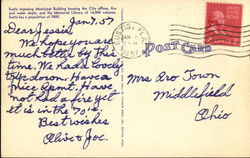 Eustis imposing Municipal Building housing the City offices, fire
and water depts. and the Memorial Library of 14,000 volumes.
Eustis has a population of 7000.
Jan 7, 57
Dear Jessie,
We hope you are
much better by this
time. We had a lovely
trip down. Have a
nice Apmt. Have
not had a fire yet
it is in the 70's.
Best wishes
Alice & Joe.
POST CARD
Mrs Aro Town
Middlefield
Ohio